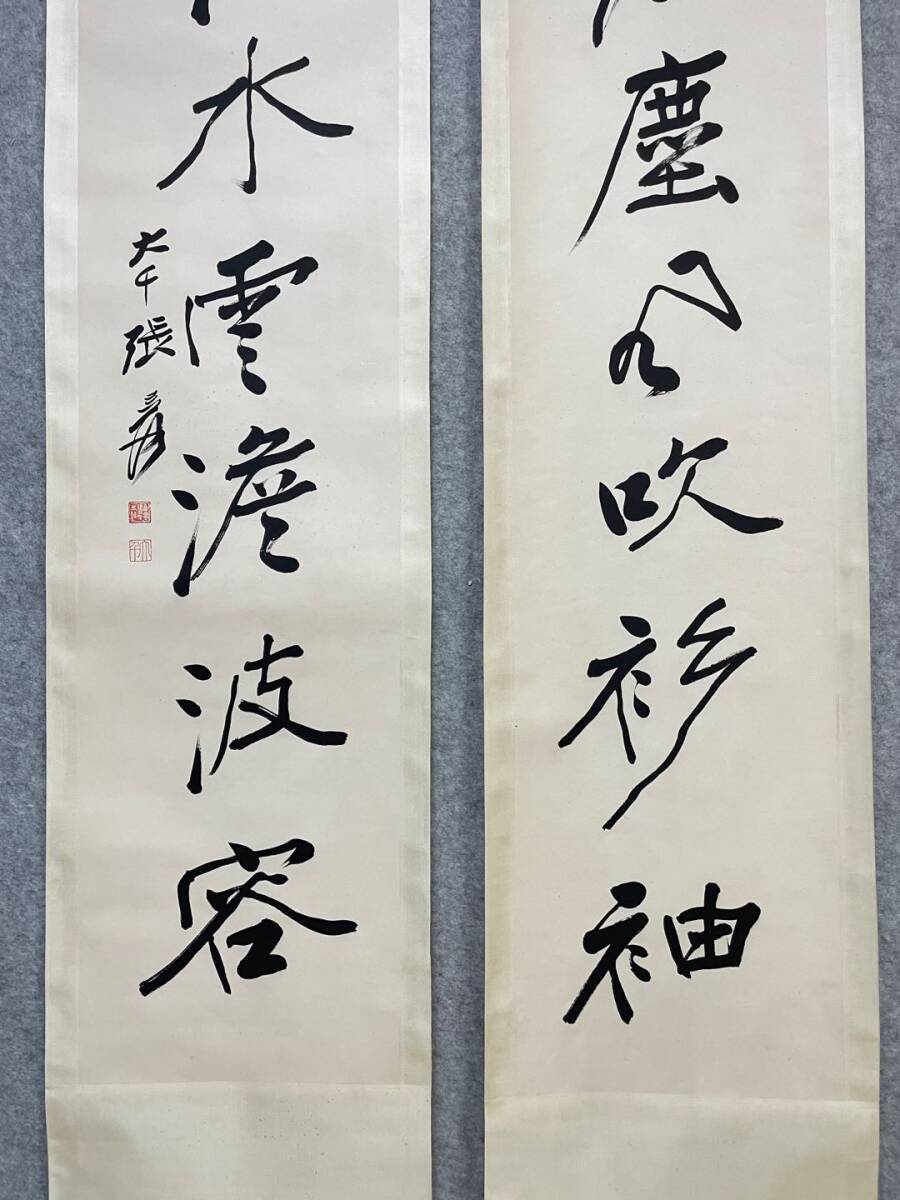 塵風吹衫袖
水雲澹波容
大千張爰